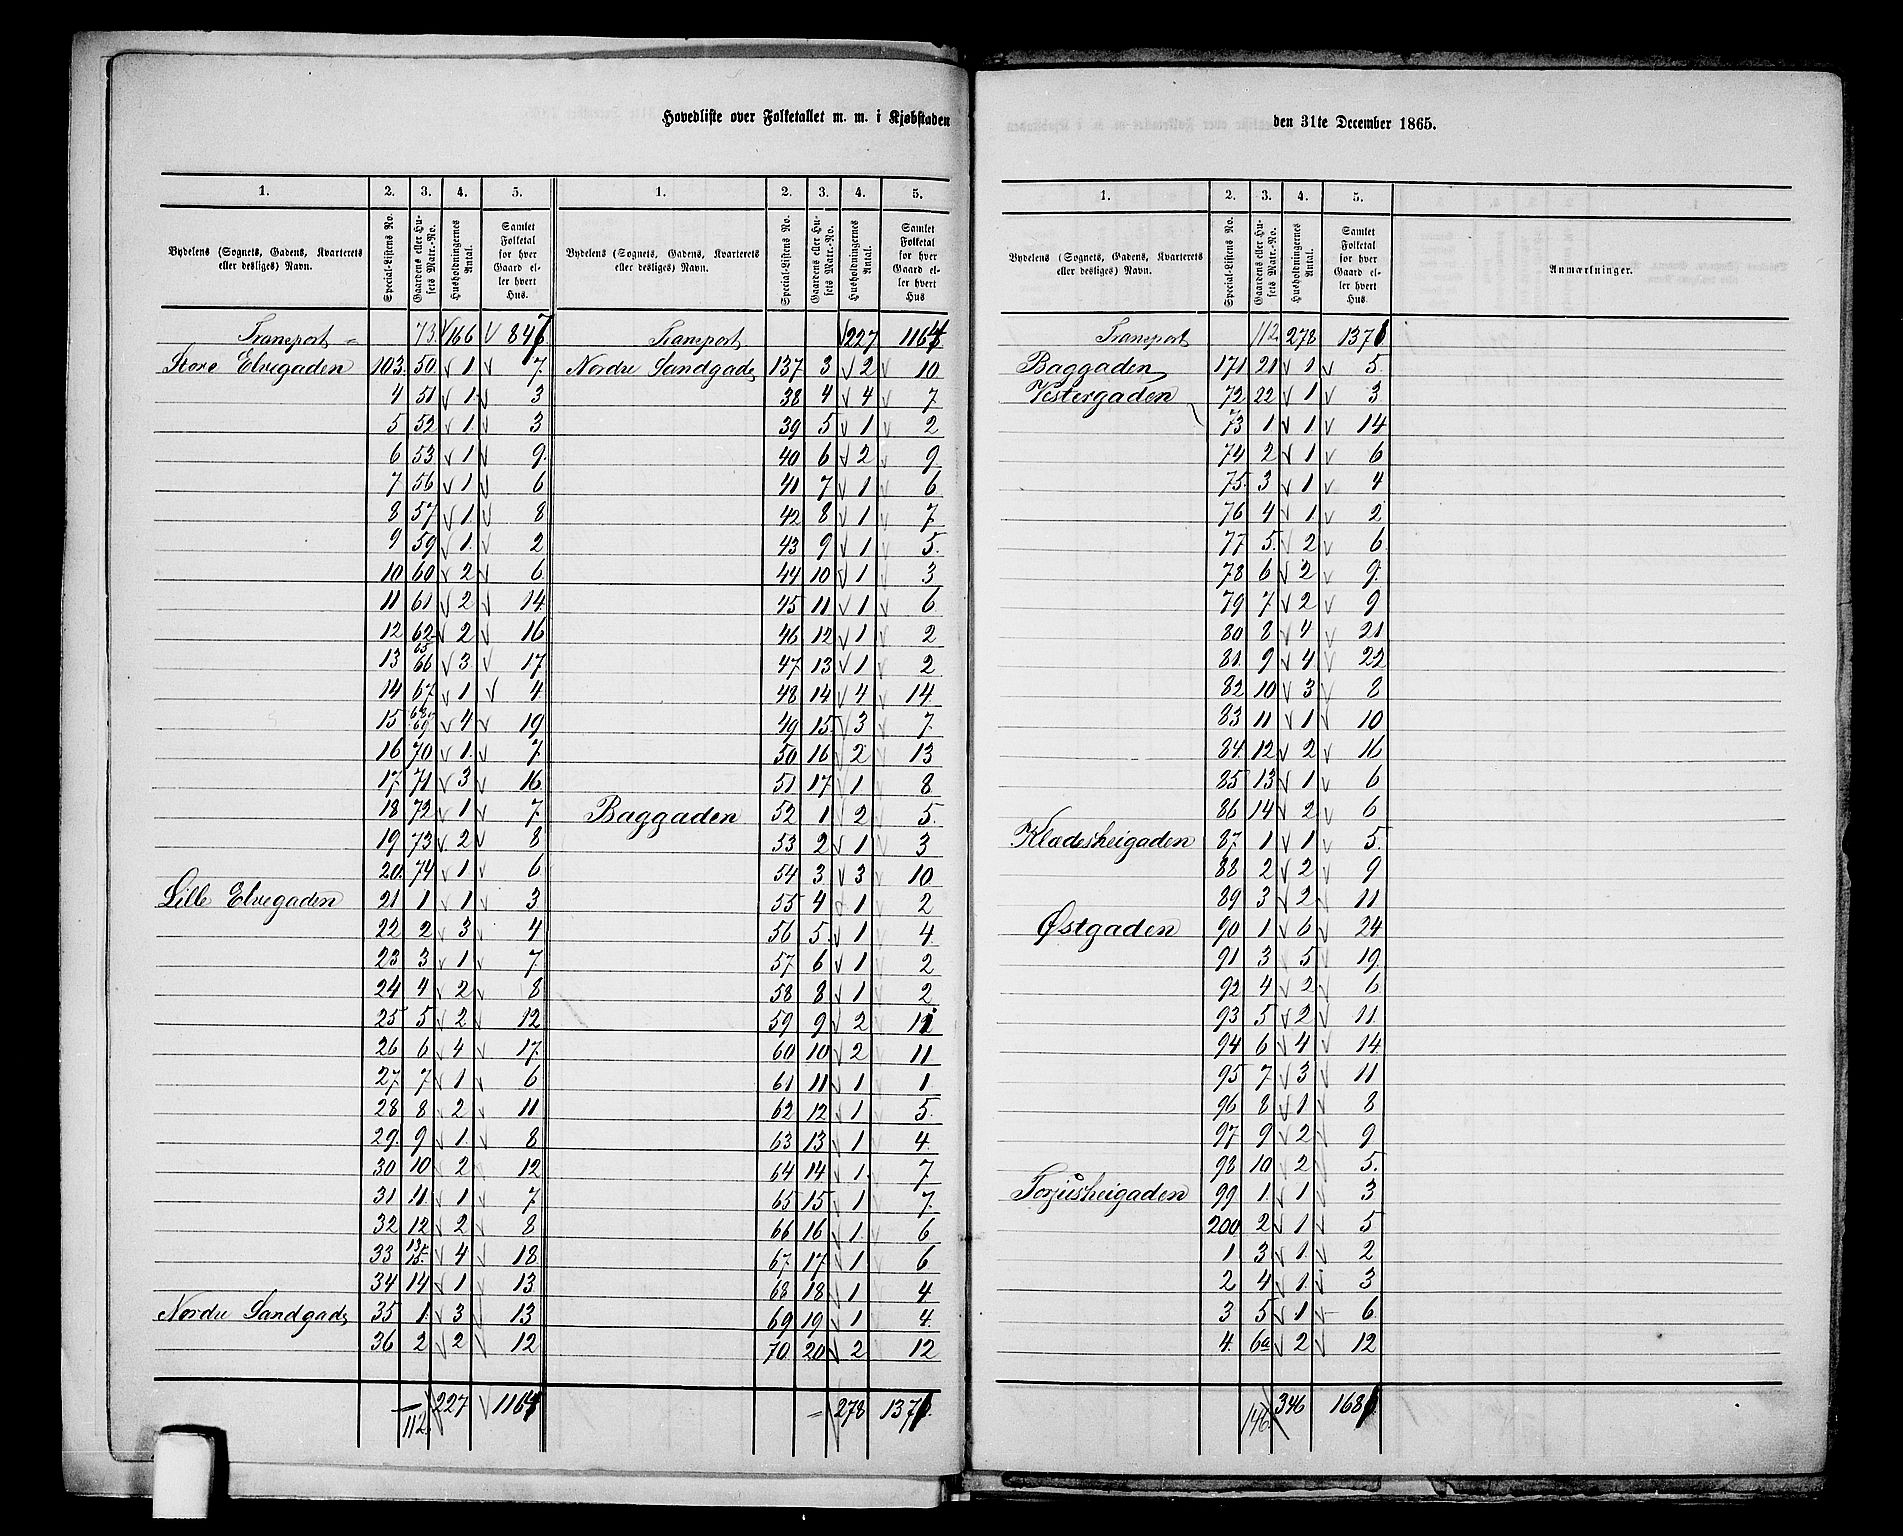 Hovedliste over Folketallet m. m. i Kjøbstaden
1. 2. 3. 4. 5. 1. 2. 3. 4. 5.
Bydelens (Sognets, Gadens, Kvarterets eller desliges) Navn. Special-Listens No. Gaardens eller Husets Matr.-No. Husholdningernes Antal. Samlet Folketal for hver Gaard eller hvert Hus. Bydelens (Sognets, Gadens, Kvarterets eller desliges) Navn. Special-Listens No. Gaardens eller Husets Matr.-No. Husholdningernes Antal. Samlet Folketal for hver Gaard eller hvert Hus
Transport 73 166 847 Transport 227 1164
Store Elvegaden 103. 50 1 7. Nordre Sandgade 137 3 2 10
4 51 1 3 38 4 4 7
5 52 1 3 39 5 1 2
6 53 1 9. 40 6 2 9
7 56 1 6 41 7 1 6
8 57 1 8 42 8 1 7.
9 59 1 2 43 9 1 5.
10 60 2 6 44 10 1 3
11 61 2 14 45 11 1 6
12 62 2 16 46 12 1 2
13 65 66 3 17. 47 13 1 2
14 67 1 4. 48 14 4 14
15 68 69 4 19 49 15 3 7.
16 70 1 7 50 16 2 13
17 71 3 16 51 17 1 8
18 72 1 7 Baggaden 52 1 2 5.
19 73 2 8 53 2 1 3
20. 74 1 6 54 3 3 10
Lille Elvegaden 21 1 1 3 55 4 1 2
22 2 3 4 56 5 1 4
23 3 1 7. 57 6 1 2
24 4 2 8 58 8 1 2
25 5 2 12 59 9 2
26 6 4 17. 60 10 2 11
27 7 1 6 61 11 1 1
28 8 2 11 62 12 1 5.
29. 9 1 8 63 13 1 4.
30 10 2 12 64 14 1 7
31 11 1 7 65 15 1 7.
32 12 2 8 66 16 1 6
33 13 15. 4 18 67 17 1 6
34 14 1 13 68 18 1 4
Nordre Sandgade 35 1 3 13 69 19 1 4.
36 2 2 12 70 20 2 12
112 227 1164 278 1371
den 31te December 1865.
1. 2. 3. 4. 5.
Bydelens (Sognets, Gadens, Kvarterets eller desliges) Navn. Special-Listens No. Gaardens eller Husets Matr.-No. Husholdningernes Antal. Samlet Folketal for hver Gaard eller hvert Hus. Anmærkninger.
Transport 112 278 1371
Baggaden 171 21 1 5.
Vestergaden 72 22 1 3
73 1 1 14
74 2 1 6
75. 3 1 4
76 4 1 2
77 5. 2 6
78 6 2 9.
79 7 2 9
80 8 4 21
81. 9 4 22
82 10 3 8
83 11 1 10
84. 12 2 16
85 13 1 6
86 14 2 6
Klædesheigaden 87 1 1 5.
88 2 2 9
89 3 2 11
Østgaden 90 1 6 24
91 3 5 19.
92 4 2 6
93 5 2 11.
94 6 4 14
95 7 3 11
96 8 1 8
97. 9 2 9
98 10 2 5.
Torjusheigaden 99 1 1 3
200 2 1 5
1. 3 1 2
2 4 1 3
3 5 1 6.
4. 6a 2 12
146 346 1681